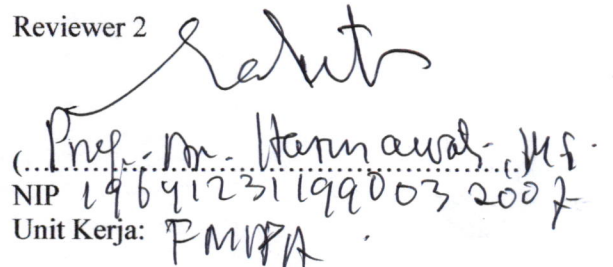 Reviewer 2
(Prof. Dr. Harmawati, MS.
NIP 196412311990032007
Unit Kerja: FMIPA